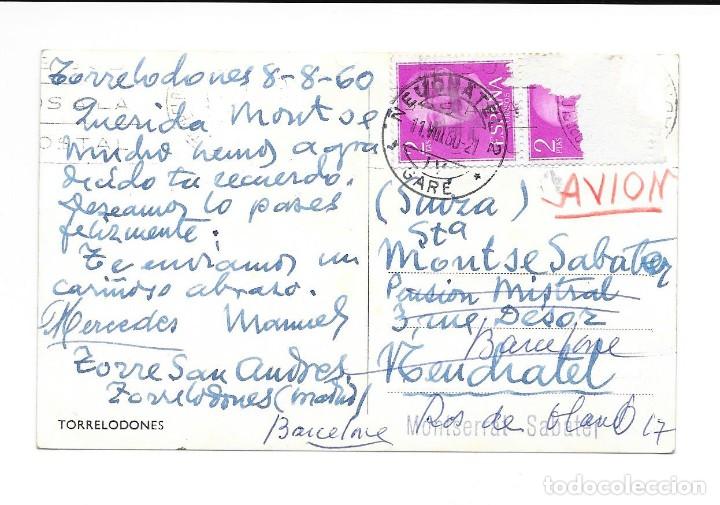 Torrelodones 8-8-60
Querida Montse
mucho hemos agra
decido tu recuerdo.
Deseamos lo pases
felizmente.
Te enviamos un
cariñoso abrazo.
Mercedes Manuel
Torre San Andres.
Torrelodones (Madrid)
TORRELODONES
Barcelone
2 PTAS
ESPAÑA
2 PTAS
NEUCHATEL 2
11.VIII.60-21
GARE
AVION
(Suiza)
Sta
Montse Sabater
Pension Mistral
3, rue Desor
Barcelone
Neuchatel
Montserrat Sabater
Ros de Olano 17
todocoleccion.net